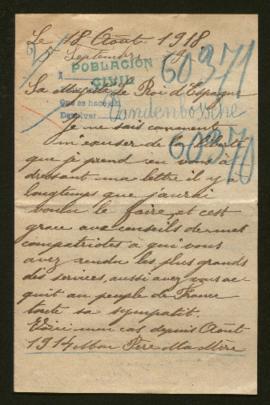 Le 18 Août 1918
Septembre
POBLACIÓN
CIVIL
60371
Sa Majesté de Roi d'Espagne
Vandenbossche
Je ne sais comment
60370
m'excuser de la liberté
que je prend en vous a
dressant ma lettre il y a
longtemps que j'aurai
voulu le faire, et c'est
grace aux conseils de mes
compatriotes a qui vous
avez rendu les plus grands
des services, aussi avez vous ac
quit au peuple de France
toute sa sympatit.
Voici mon cas depuis Août
1914 Mon Père Ma Mère